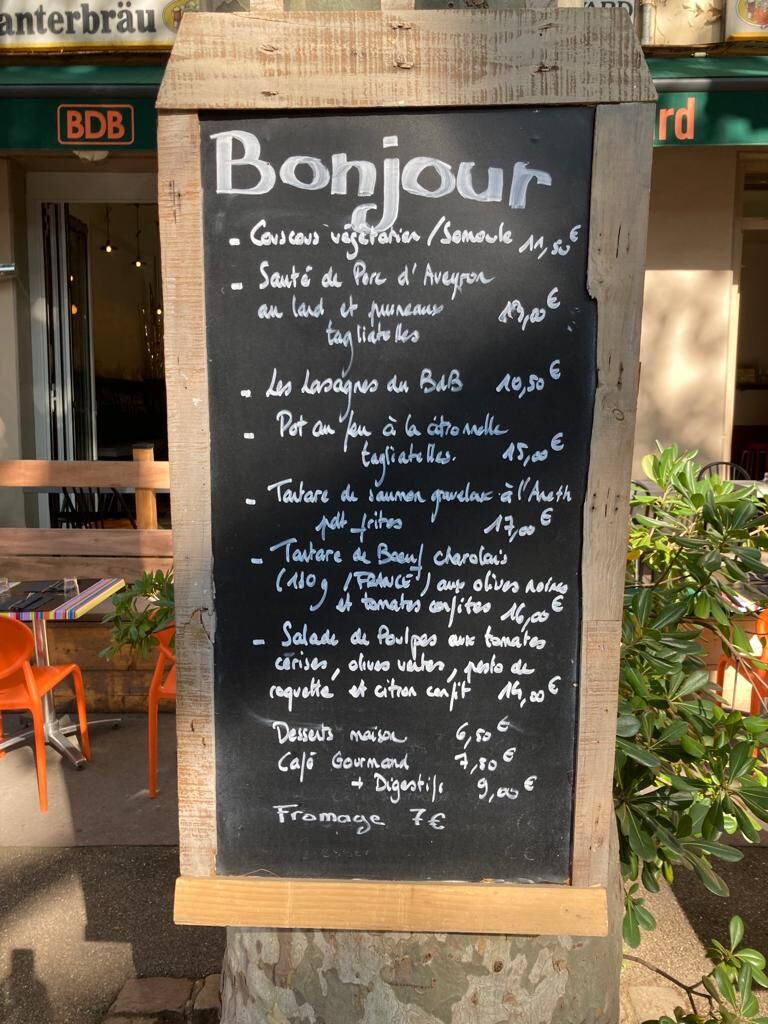 anterbräu
ARD
BDB
rd
Bonjour
- Couscous végétarien / Semoule 11,50€
- Sauté de Porc d'Aveyron
au lard et pruneaux 13,00€
tagliatelles
- Les Lasagnes du BdB 10,50€
- Pot au feu à la citronnelle
tagliatelles. 15,00€
- Tartare de saumon gravelax à l'Aneth
pdt frites 17,00€
- Tartare de Boeuf charolais
(180g / FRANCE) aux olives noires
et tomates confites 16,00€
- Salade de Poulpes aux tomates
cerises, olives vertes, pesto de
roquette et citron confit 14,00€
Desserts maison 6,50€
Café Gourmand 7,50€
+ Digestifs 9,00€
Fromage 7€